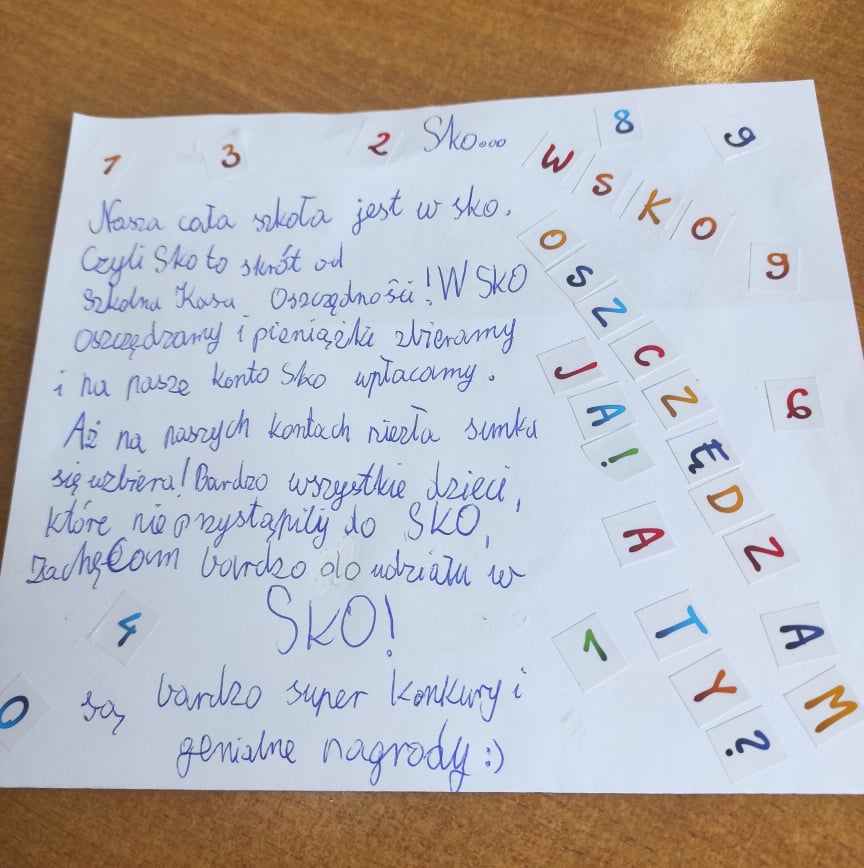 1 3 2 Sko... 8 9
Nasza cała szkoła jest w sko.
Czyli Sko to skrót od
Szkolna Kasa Oszczędności! W SKO
oszczędzamy i pieniążki zbieramy
i na nasze konto Sko wpłacamy.
Aż na naszych kontach niezła sumka
się uzbiera! Bardzo wszystkie dzieci,
które nie przystąpiły do SKO,
zachęcam bardzo do udziału w
SKO!
są bardzo super konkury i
genialne nagrody :)
W SKO
OSZCZĘDZAM
JA!
A
TY?
9
6
4
0
1